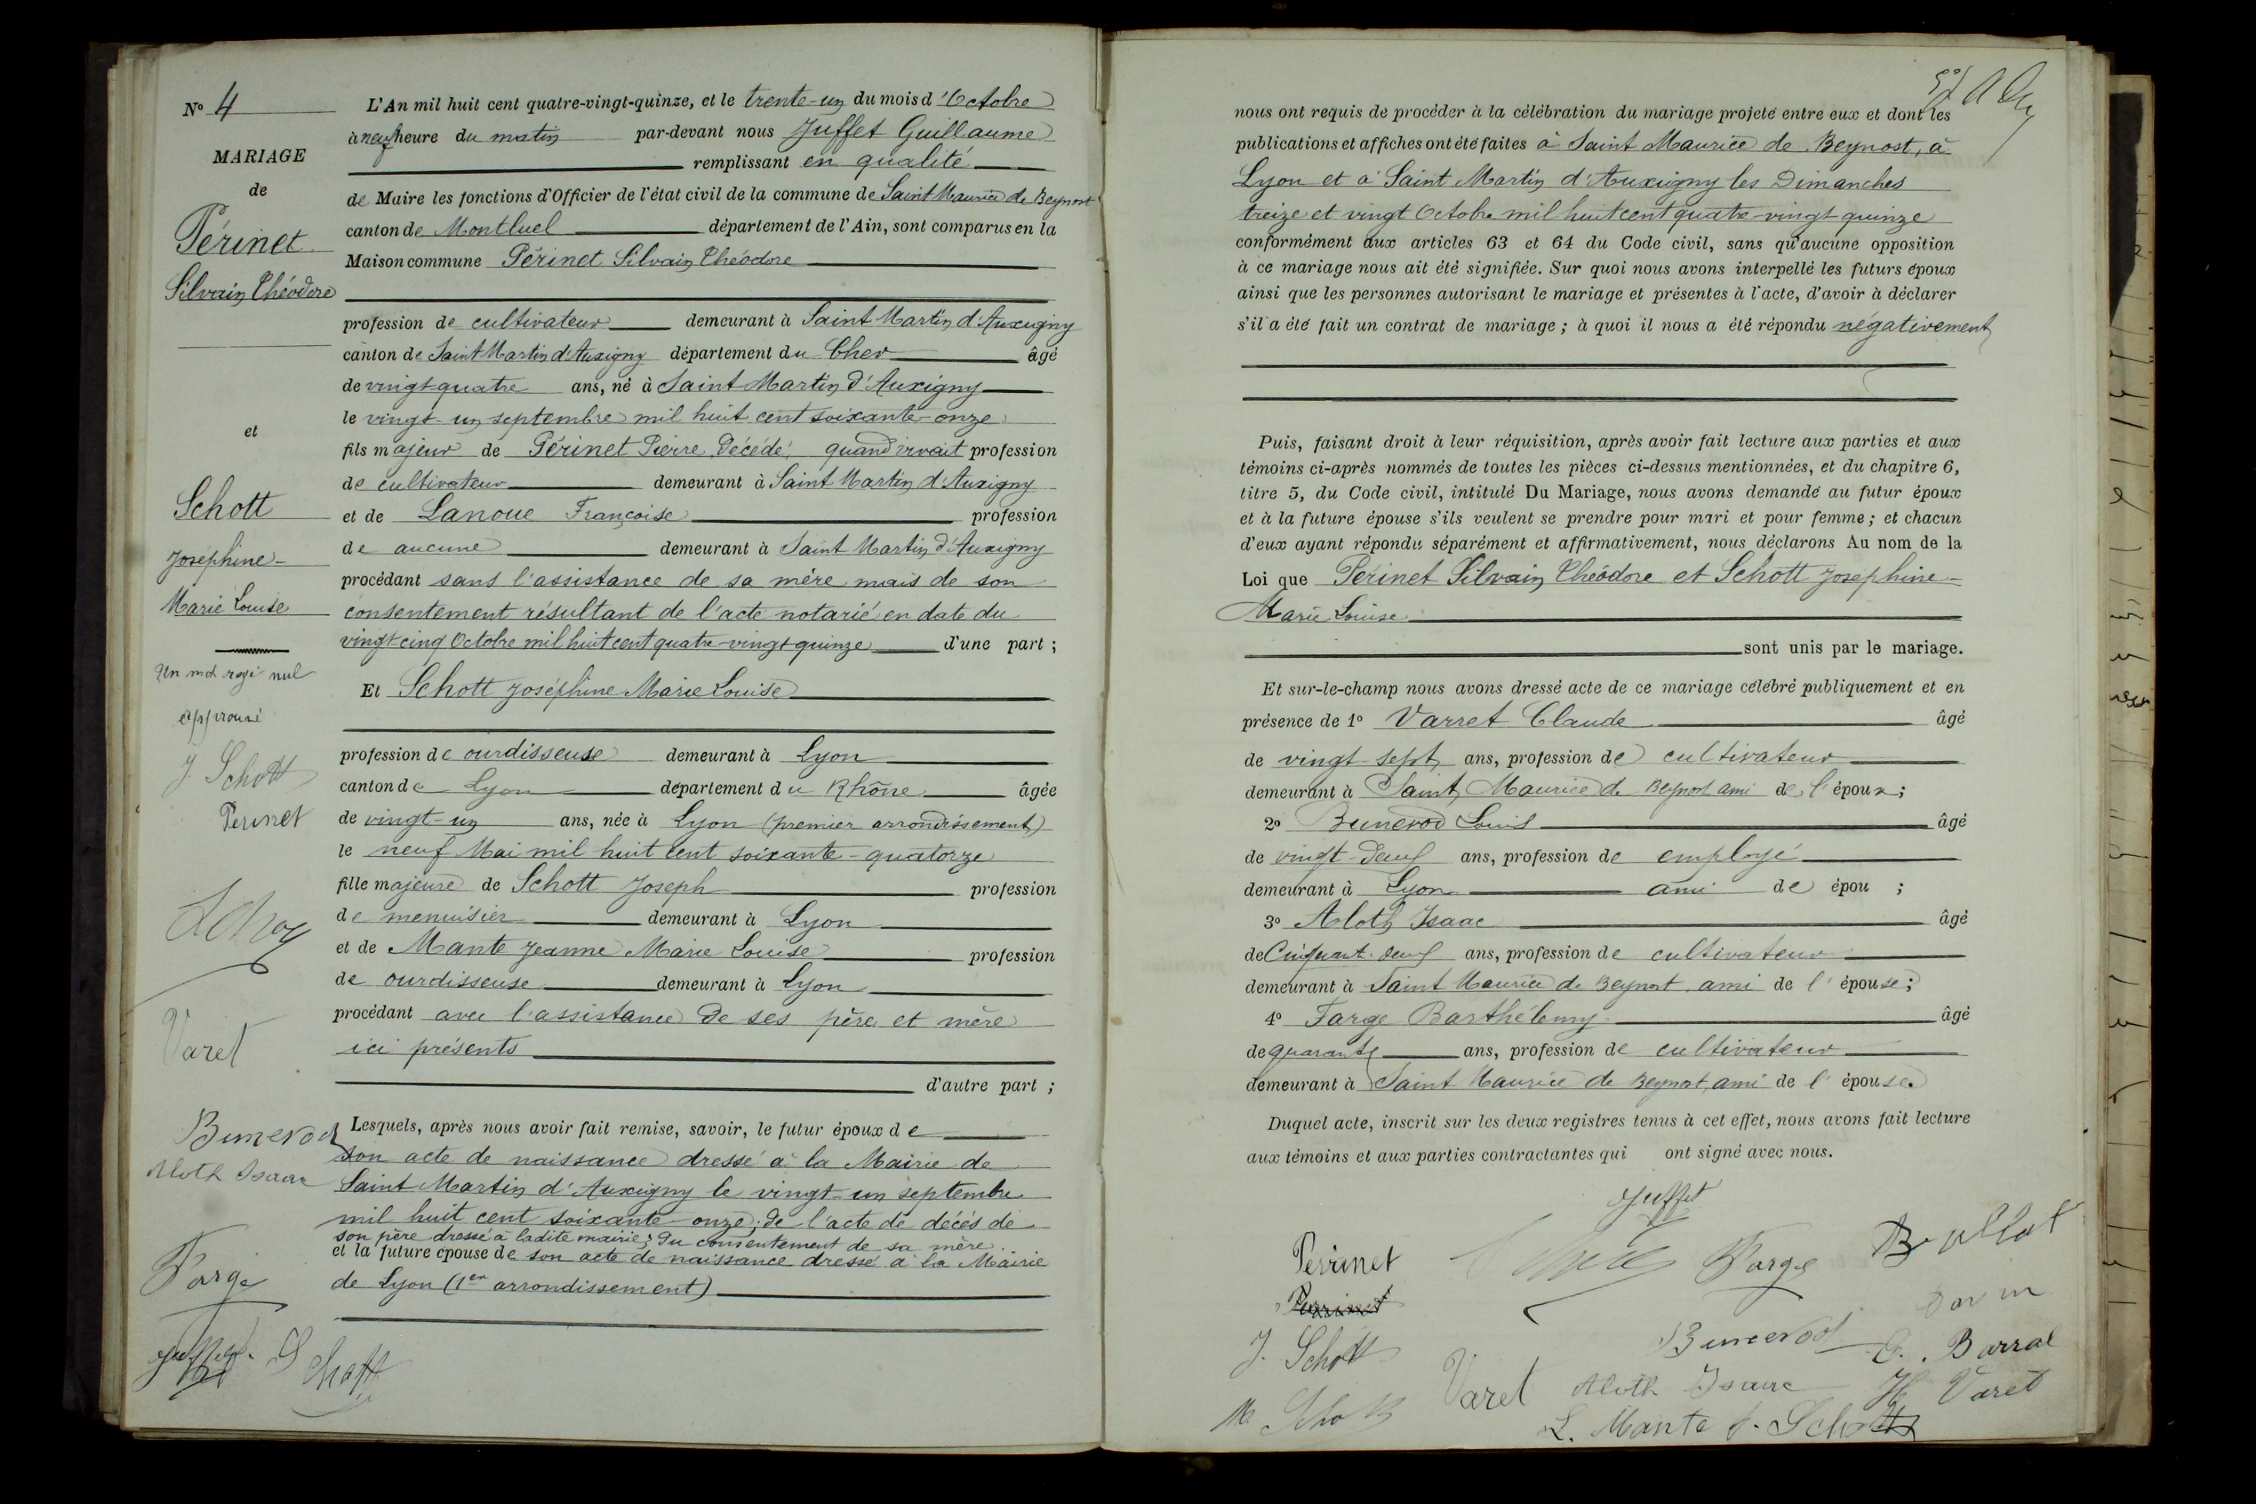 Nº 4
MARIAGE
de
Périnet
Silvain Théodore
et
Schott
Joséphine-
Marie Louise
Un mot rayé nul
approuvé
J Schott
Perinet
Varet
Bunerod
Aloth Isaac
Farge
Juffet. Schott
L'An mil huit cent quatre-vingt-quinze, et le trente-un du mois d'Octobre
à neuf heure du matin par-devant nous Juffet Guillaume
remplissant en qualité
de Maire les fonctions d'Officier de l'état civil de la commune de Saint Maurice de Beynost
canton de Montluel département de l'Ain, sont comparus en la
Maison commune Périnet Silvain Théodore
profession de cultivateur demeurant à Saint Martin d'Auxigny
canton de Saint Martin d'Auxigny département du Cher âgé
de vingt-quatre ans, né à Saint Martin d'Auxigny
le vingt-un septembre mil huit cent soixante-onze
fils majeur de Périnet Pierre, décédé, quand vivait profession
de cultivateur demeurant à Saint Martin d'Auxigny
et de Lanoue Françoise profession
de aucune demeurant à Saint Martin d'Auxigny
procédant sans l'assistance de sa mère mais de son
consentement résultant de l'acte notarié en date du
vingt-cinq Octobre mil huit cent quatre-vingt-quinze d'une part ;
Et Schott Joséphine Marie Louise
profession de ourdisseuse demeurant à Lyon
canton de Lyon département du Rhône âgée
de vingt-un ans, née à Lyon (premier arrondissement)
le neuf Mai mil huit cent soixante-quatorze
fille majeure de Schott Joseph profession
de menuisier demeurant à Lyon
et de Mante Jeanne Marie Louise profession
de ourdisseuse demeurant à Lyon
procédant avec l'assistance de ses père et mère
ici présents
d'autre part ;
Lesquels, après nous avoir fait remise, savoir, le futur époux de
son acte de naissance dressé à la Mairie de
Saint Martin d'Auxigny le vingt-un septembre
mil huit cent soixante-onze; de l'acte de décès de
son père dressé à ladite mairie; du consentement de sa mère
et la future épouse de son acte de naissance dressé à la Mairie
de Lyon (1er arrondissement)
nous ont requis de procéder à la célébration du mariage projeté entre eux et dont les
publications et affiches ont été faites à Saint Maurice de Beynost, à
Lyon et à Saint Martin d'Auxigny les Dimanches
treize et vingt Octobre mil huit cent quatre-vingt-quinze
conformément aux articles 63 et 64 du Code civil, sans qu'aucune opposition
à ce mariage nous ait été signifiée. Sur quoi nous avons interpellé les futurs époux
ainsi que les personnes autorisant le mariage et présentes à l'acte, d'avoir à déclarer
s'il a été fait un contrat de mariage ; à quoi il nous a été répondu négativement
Puis, faisant droit à leur réquisition, après avoir fait lecture aux parties et aux
témoins ci-après nommés de toutes les pièces ci-dessus mentionnées, et du chapitre 6,
titre 5, du Code civil, intitulé Du Mariage, nous avons demandé au futur époux
et à la future épouse s'ils veulent se prendre pour mari et pour femme ; et chacun
d'eux ayant répondu séparément et affirmativement, nous déclarons Au nom de la
Loi que Périnet Silvain Théodore et Schott Joséphine-
Marie Louise
sont unis par le mariage.
Et sur-le-champ nous avons dressé acte de ce mariage célébré publiquement et en
présence de 1º Varret Claude âgé
de vingt-sept ans, profession de cultivateur
demeurant à Saint Maurice de Beynost ami de l'époux ;
2º Bunerod Louis âgé
de vingt-neuf ans, profession de employé
demeurant à Lyon ami de épou ;
3º Aloth Isaac âgé
de Cinquante-neuf ans, profession de cultivateur
demeurant à Saint Maurice de Beynost ami de l'épouse ;
4º Farge Barthélemy âgé
de quarante ans, profession de cultivateur
demeurant à Saint Maurice de Beynost, ami de l'épouse.
Duquel acte, inscrit sur les deux registres tenus à cet effet, nous avons fait lecture
aux témoins et aux parties contractantes qui ont signé avec nous.
Juffet
Perinet Farge
J. Schott Bunerod Barral
Varet Aloth Isaac H Varet
M Schott L. Mante f. Schott